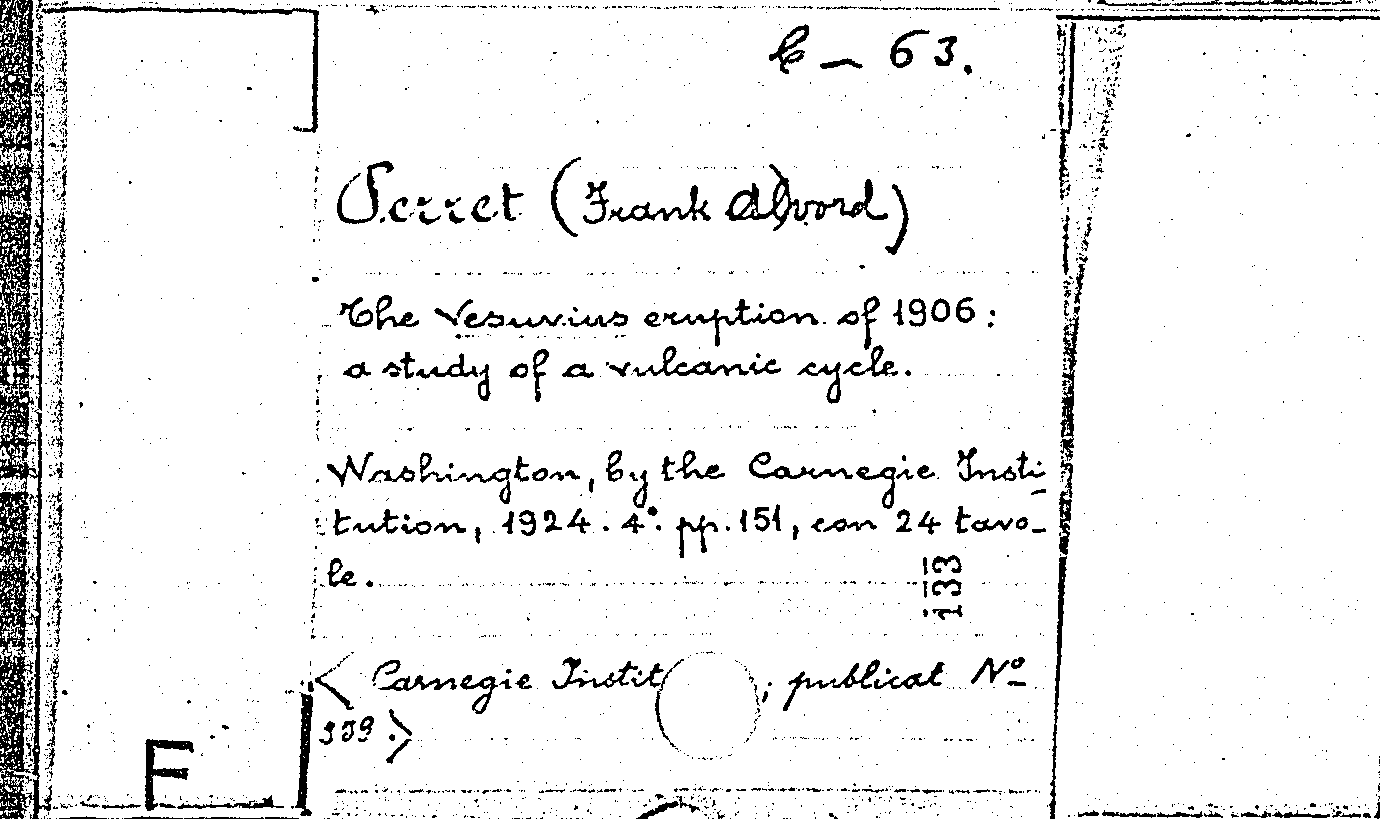 C — 63.
Perret (Frank Alvord)
The Vesuvius eruption of 1906:
a study of a vulcanic cycle.
Washington, by the Carnegie Insti-
tution, 1924. 4°. pp. 151, con 24 tavo-
le.
133
< Carnegie Instit ; publicat Nº
339.>
F